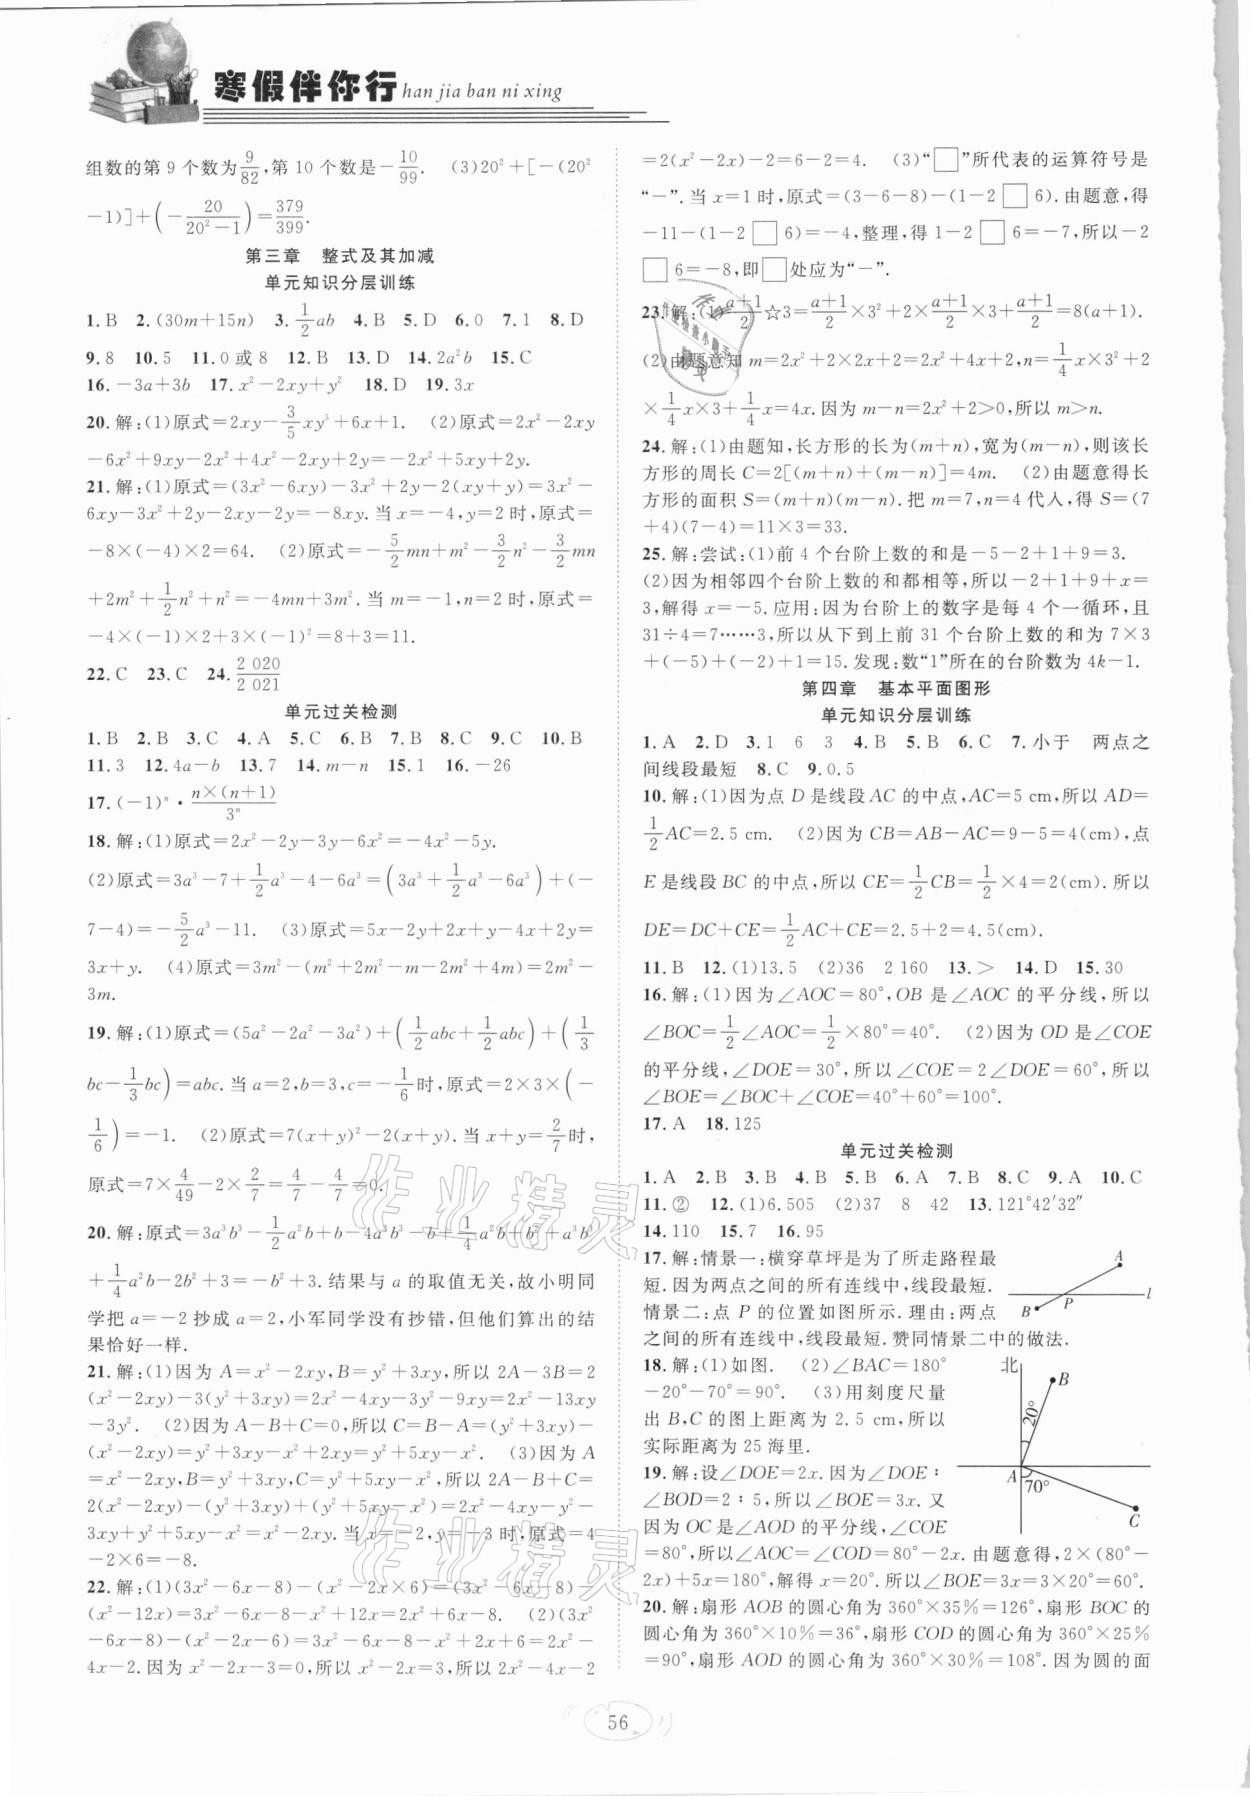 寒假伴你行 han jia ban ni xing
组数的第 9 个数为9/82,第 10 个数是−10/99. (3)20²+[−(20²
−1)]+(−20/(20²−1))=379/399.
第三章 整式及其加减
单元知识分层训练
1.B 2.(30m+15n) 3.1/2ab 4.B 5.D 6.0 7.1 8.D
9.8 10.5 11.0 或 8 12.B 13.D 14.2a²b 15.C
16.−3a+3b 17.x²−2xy+y² 18.D 19.3x
20.解:(1)原式=2xy−3/5xy³+6x+1. (2)原式=2x²−2xy
−6x²+9xy−2x²+4x²−2xy+2y=−2x²+5xy+2y.
21.解:(1)原式=(3x²−6xy)−3x²+2y−2(xy+y)=3x²−
6xy−3x²+2y−2xy−2y=−8xy.当 x=−4,y=2 时,原式=
−8×(−4)×2=64. (2)原式=−5/2mn+m²−3/2n²−3/2mn
+2m²+1/2n²+n²=−4mn+3m².当 m=−1,n=2 时,原式=
−4×(−1)×2+3×(−1)²=8+3=11.
22.C 23.C 24.2 020/2 021
单元过关检测
1.B 2.B 3.C 4.A 5.C 6.B 7.B 8.C 9.C 10.B
11.3 12.4a−b 13.7 14.m−n 15.1 16.−26
17.(−1)ⁿ·n×(n+1)/3ⁿ
18.解:(1)原式=2x²−2y−3y−6x²=−4x²−5y.
(2)原式=3a³−7+1/2a³−4−6a³=(3a³+1/2a³−6a³)+(−
7−4)=−5/2a³−11. (3)原式=5x−2y+2x+y−4x+2y=
3x+y. (4)原式=3m²−(m²+2m−m−2m²+4m)=2m²−
3m.
19.解:(1)原式=(5a²−2a²−3a²)+(1/2abc+1/2abc)+(1/3
bc−1/3bc)=abc.当 a=2,b=3,c=−1/6时,原式=2×3×(−
1/6)=−1. (2)原式=7(x+y)²−2(x+y).当 x+y=2/7时,
原式=7×4/49−2×2/7=4/7−4/7=0.
20.解:原式=3a³b³−1/2a²b+b−4a³b³−b+1/4a²b+b²+a³b³
+1/4a²b−2b²+3=−b²+3.结果与 a 的取值无关,故小明同
学把 a=−2 抄成 a=2,小军同学没有抄错,但他们算出的结
果恰好一样.
21.解:(1)因为 A=x²−2xy,B=y²+3xy,所以 2A−3B=2
(x²−2xy)−3(y²+3xy)=2x²−4xy−3y²−9xy=2x²−13xy
−3y². (2)因为 A−B+C=0,所以 C=B−A=(y²+3xy)−
(x²−2xy)=y²+3xy−x²+2xy=y²+5xy−x². (3)因为 A
=x²−2xy,B=y²+3xy,C=y²+5xy−x²,所以 2A−B+C=
2(x²−2xy)−(y²+3xy)+(y²+5xy−x²)=2x²−4xy−y²−
3xy+y²+5xy−x²=x²−2xy.当 x=−2,y=−3 时,原式=4
−2×6=−8.
22.解:(1)(3x²−6x−8)−(x²−2x×6)=(3x²−6x−8)−
(x²−12x)=3x²−6x−8−x²+12x=2x²+6x−8. (2)(3x²
−6x−8)−(x²−2x−6)=3x²−6x−8−x²+2x+6=2x²−
4x−2.因为 x²−2x−3=0,所以 x²−2x=3,所以 2x²−4x−2
=2(x²−2x)−2=6−2=4. (3)“□”所代表的运算符号是
“−”.当 x=1 时,原式=(3−6−8)−(1−2□6).由题意,得
−11−(1−2□6)=−4,整理,得 1−2□6=−7,所以−2
□6=−8,即□处应为“−”.
23.解:(1)(a+1)/2☆3=(a+1)/2×3²+2×(a+1)/2×3+(a+1)/2=8(a+1).
(2)由题意知 m=2x²+2×2x+2=2x²+4x+2,n=1/4x×3²+2
×1/4x×3+1/4x=4x.因为 m−n=2x²+2>0,所以 m>n.
24.解:(1)由题知,长方形的长为(m+n),宽为(m−n),则该长
方形的周长 C=2[(m+n)+(m−n)]=4m. (2)由题意得长
方形的面积 S=(m+n)(m−n).把 m=7,n=4 代入,得 S=(7
+4)(7−4)=11×3=33.
25.解:尝试:(1)前 4 个台阶上数的和是−5−2+1+9=3.
(2)因为相邻四个台阶上数的和都相等,所以−2+1+9+x=
3,解得 x=−5.应用:因为台阶上的数字是每 4 个一循环,且
31÷4=7……3,所以从下到上前 31 个台阶上数的和为 7×3
+(−5)+(−2)+1=15.发现:数“1”所在的台阶数为 4k−1.
第四章 基本平面图形
单元知识分层训练
1.A 2.D 3.1 6 3 4.B 5.B 6.C 7.小于 两点之
间线段最短 8.C 9.0.5
10.解:(1)因为点 D 是线段 AC 的中点,AC=5 cm,所以 AD=
1/2AC=2.5 cm. (2)因为 CB=AB−AC=9−5=4(cm),点
E 是线段 BC 的中点,所以 CE=1/2CB=1/2×4=2(cm).所以
DE=DC+CE=1/2AC+CE=2.5+2=4.5(cm).
11.B 12.(1)13.5 (2)36 2 160 13.> 14.D 15.30
16.解:(1)因为∠AOC=80°,OB 是∠AOC 的平分线,所以
∠BOC=1/2∠AOC=1/2×80°=40°. (2)因为 OD 是∠COE
的平分线,∠DOE=30°,所以∠COE=2∠DOE=60°,所以
∠BOE=∠BOC+∠COE=40°+60°=100°.
17.A 18.125
单元过关检测
1.A 2.B 3.B 4.B 5.B 6.A 7.B 8.C 9.A 10.C
11.② 12.(1)6.505 (2)37 8 42 13.121°42′32″
14.110 15.7 16.95
17.解:情景一:横穿草坪是为了所走路程最
短.因为两点之间的所有连线中,线段最短.
情景二:点 P 的位置如图所示.理由:两点
之间的所有连线中,线段最短.赞同情景二中的做法.
A
B P l
18.解:(1)如图. (2)∠BAC=180°
−20°−70°=90°. (3)用刻度尺量
出 B,C 的图上距离为 2.5 cm,所以
实际距离为 25 海里.
北
B
20°
A 70°
C
19.解:设∠DOE=2x.因为∠DOE∶
∠BOD=2∶5,所以∠BOE=3x.又
因为 OC 是∠AOD 的平分线,∠COE
=80°,所以∠AOC=∠COD=80°−2x.由题意得,2×(80°−
2x)+5x=180°,解得 x=20°.所以∠BOE=3x=3×20°=60°.
20.解:扇形 AOB 的圆心角为 360°×35%=126°,扇形 BOC 的
圆心角为 360°×10%=36°,扇形 COD 的圆心角为 360°×25%
=90°,扇形 AOD 的圆心角为 360°×30%=108°.因为圆的面
56
作业精灵
作业精灵